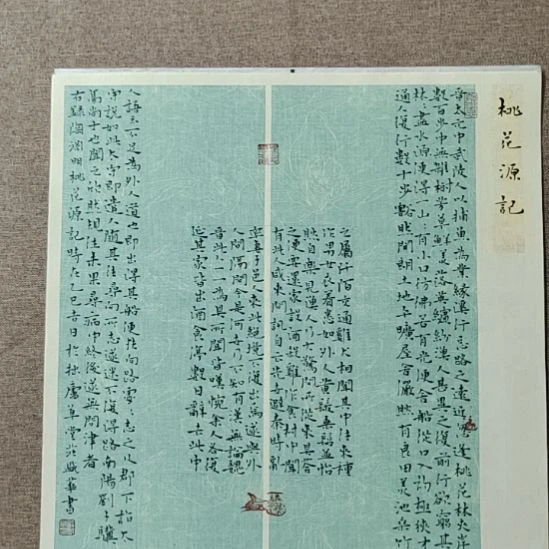 桃花源記
晉太元中武陵人以捕魚為業緣溪行忘路之遠近忽逢桃花林夾岸
數百步中無雜樹芳草鮮美落英繽紛漁人甚異之復前行欲窮其
林林盡水源便得一山山有小口彷彿若有光便舍船從口入初極狹才
通人復行數十步豁然開朗土地平曠屋舍儼然有良田美池桑竹
之屬阡陌交通雞犬相聞其中往來種
作男女衣著悉如外人黃髮垂髫並怡
然自樂見漁人乃大驚問所從來具答
之便要還家設酒殺雞作食村中聞
有此人咸來問訊自云先世避秦時亂
率妻子邑人來此絕境不復出焉遂與外
人間隔問今是何世乃不知有漢無論魏
晉此人一一為具所聞皆嘆惋余人各復
延其家皆出酒食停數日辭去此中
人語云不足為外人道也即出得其船便扶向路處處志之及郡下指太
守說如此太守即遣人隨其往尋向所志遂迷不復得路南陽劉子驥
高尚士也聞之欣然規往未果尋病中終後遂無問津者
右錄陶淵明桃花源記時在乙巳吉日於拙廬草堂華書